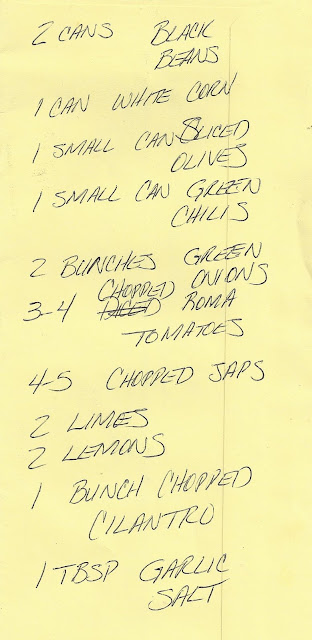 2 CANS BLACK
BEANS
1 CAN WHITE CORN
1 SMALL CAN SLICED
OLIVES
1 SMALL CAN GREEN
CHILIS
2 BUNCHES GREEN
ONIONS
3-4 CHOPPED DICED ROMA
TOMATOES
4-5 CHOPPED JAPS
2 LIMES
2 LEMONS
1 BUNCH CHOPPED
CILANTRO
1 TBSP GARLIC
SALT